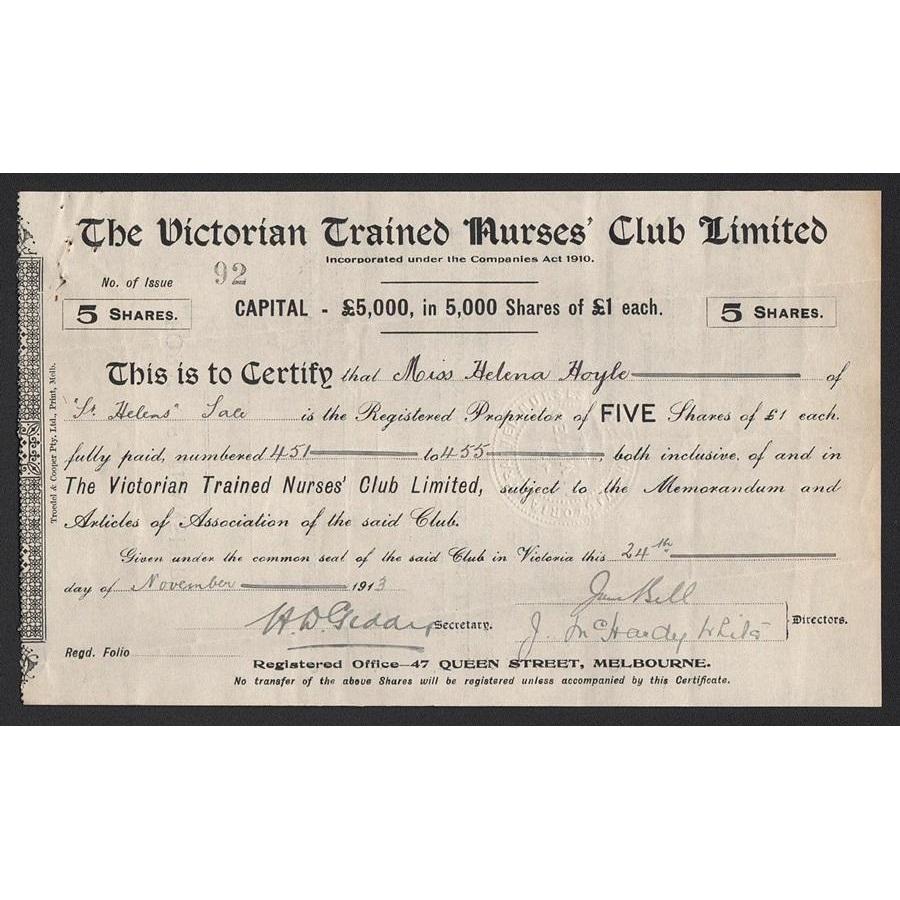 The Victorian Trained Nurses' Club Limited
Incorporated under the Companies Act 1910.
No. of Issue 92
5 SHARES. CAPITAL - £5,000, in 5,000 Shares of £1 each. 5 SHARES.
This is to Certify that Miss Helena Hoyle of
"St. Helens" Sale is the Registered Proprietor of FIVE Shares of £1 each.
fully paid, numbered 451 to 455, both inclusive, of and in
The Victorian Trained Nurses' Club Limited, subject to the Memorandum and
Articles of Association of the said Club.
Given under the common seal of the said Club in Victoria this 24th
day of November 1913
Bell
H. D. Secretary. J. McHardy White Directors.
Regd. Folio
Registered Office—47 QUEEN STREET, MELBOURNE.
No transfer of the above Shares will be registered unless accompanied by this Certificate.
Troedel & Cooper Pty. Ltd., Print, Melb.